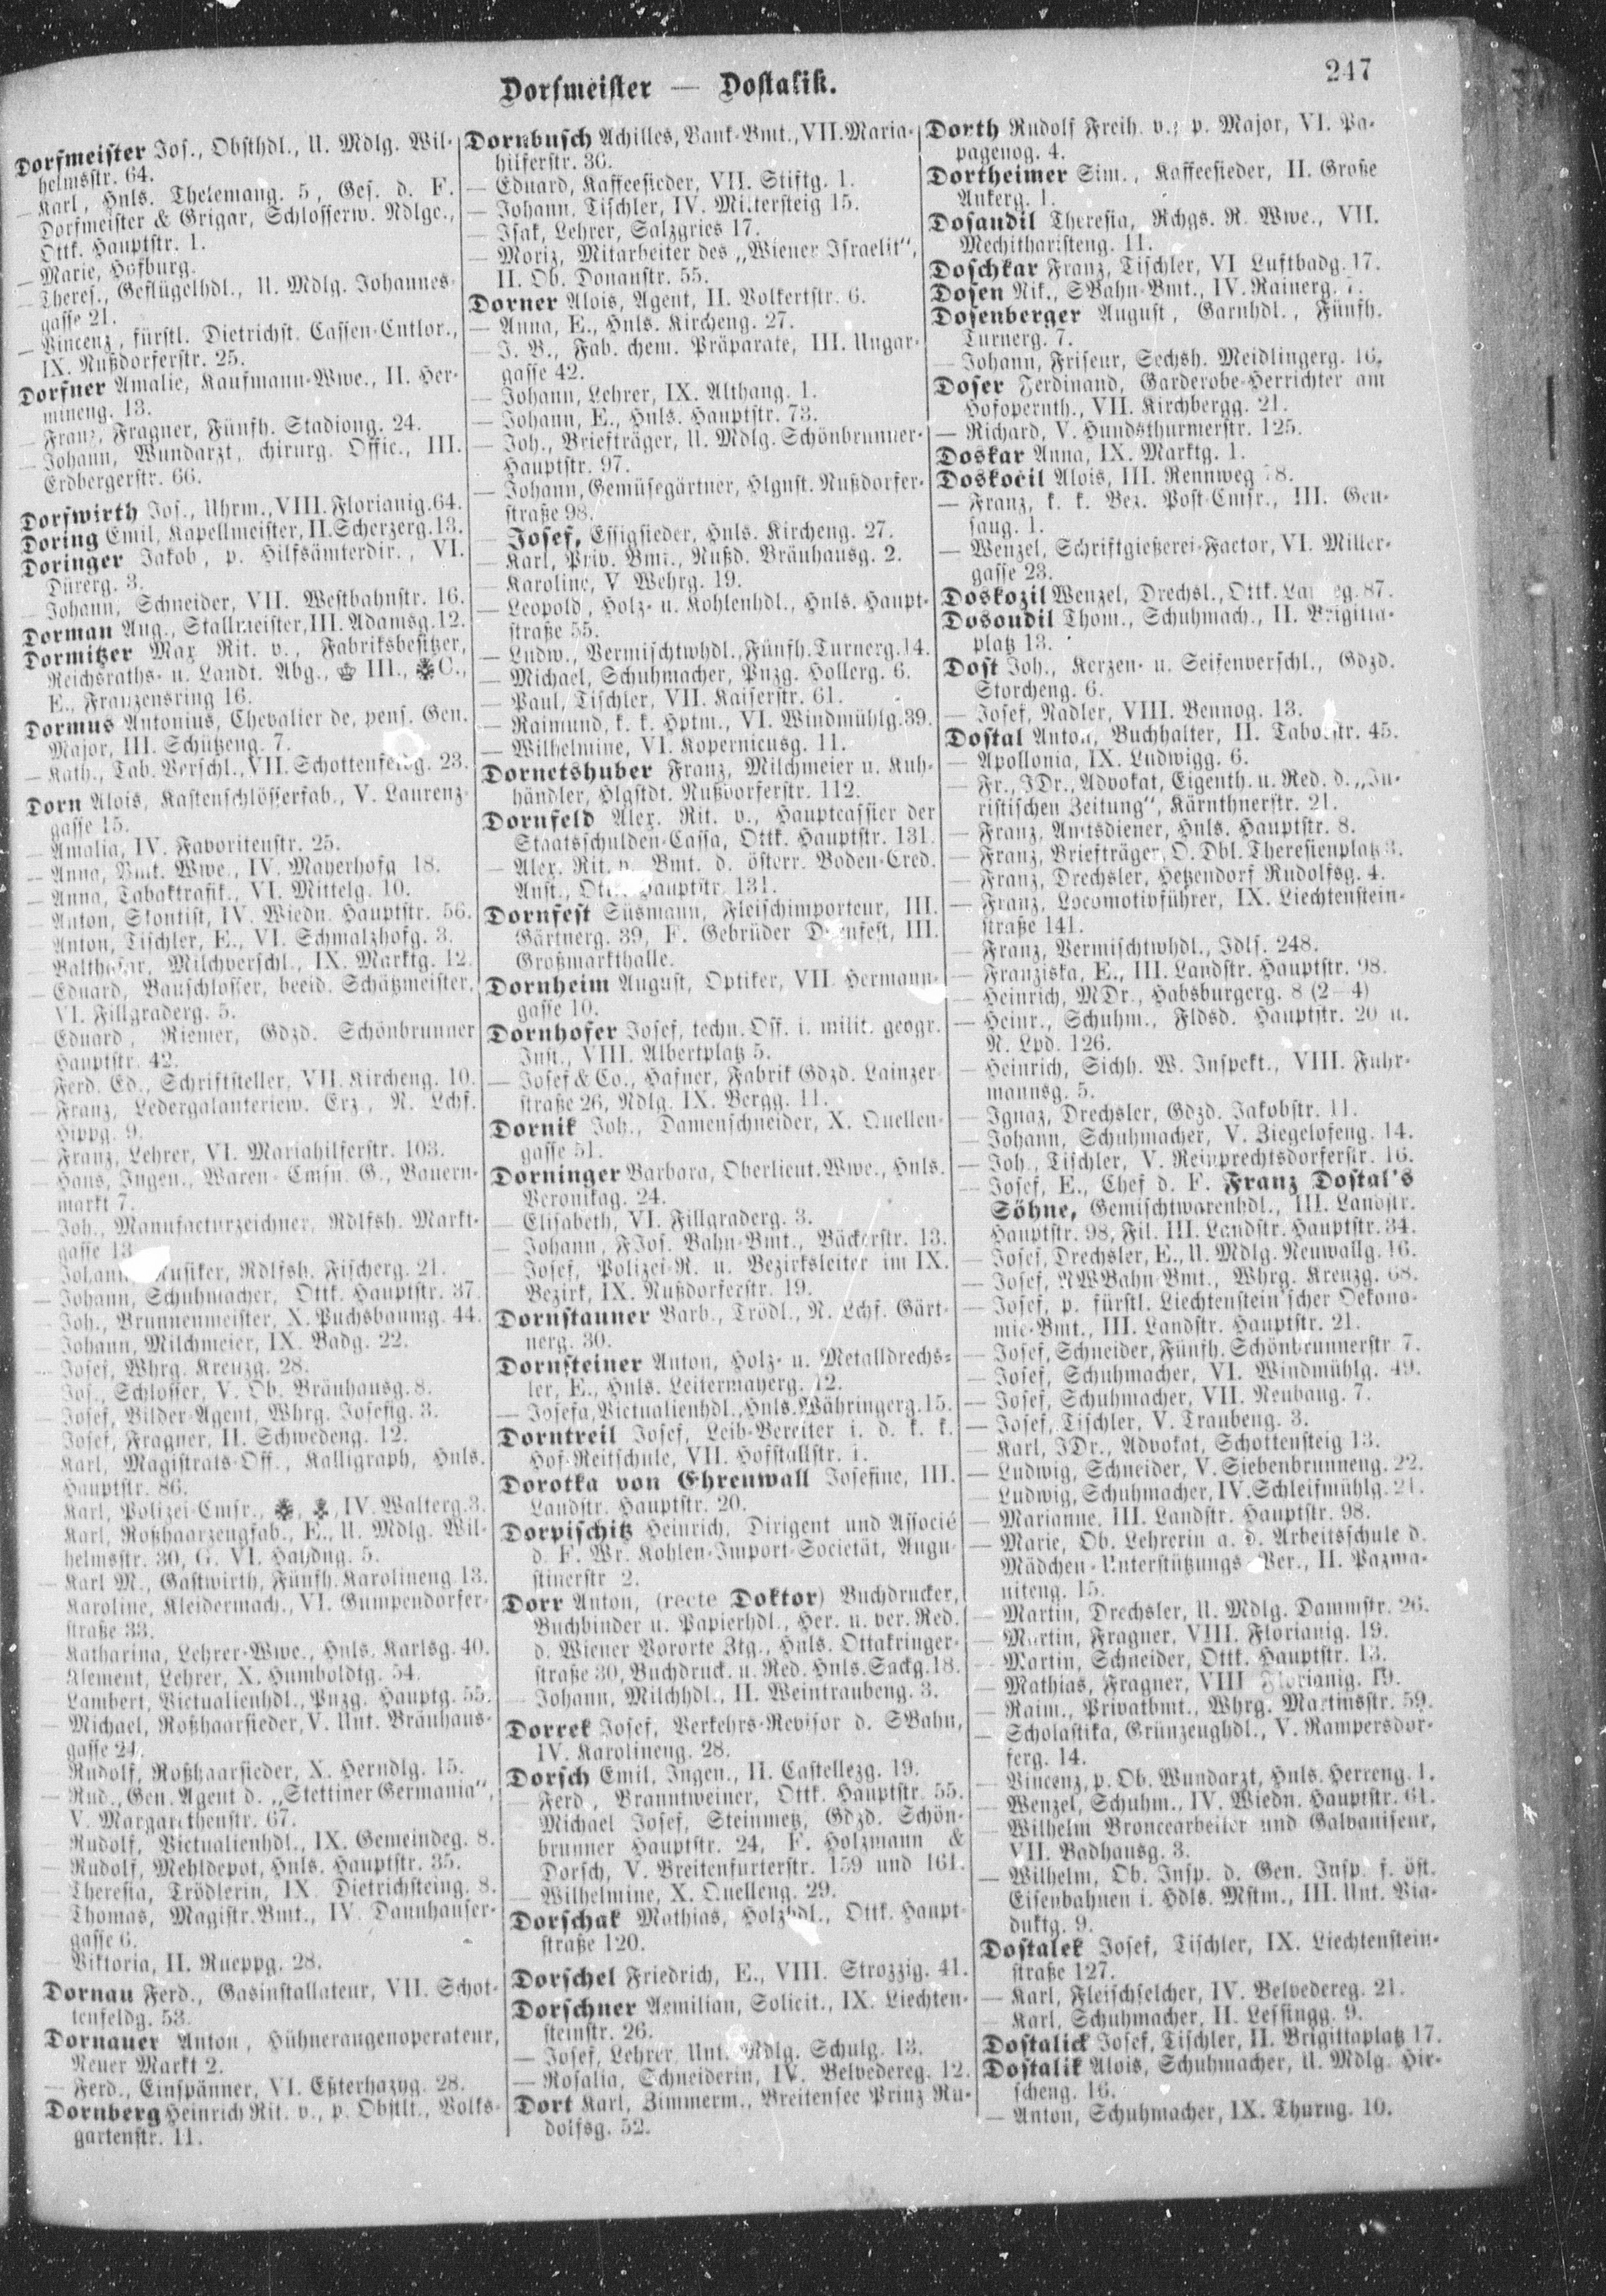 247
Dorfmeister — Dostalik.
Dorfmeister Jos., Obsthdl., U. Mdlg. Wil-
helmsstr. 64.
— Karl, Hnls. Thelemang. 5, Ges. d. F.
Dorfmeister & Grigar, Schlosserw. Ndlge.,
Ottk. Hauptstr. 1.
— Marie, Hofburg.
— Theres., Geflügelhdl., U. Mdlg. Johannes-
gasse 21.
— Vincenz, fürstl. Dietrichst. Cassen-Cntlor.,
IX. Nußdorferstr. 25.
Dorfner Amalie, Kaufmann-Wwe., II. Her-
mineng. 13.
— Franz, Fragner, Fünfh. Stadiong. 24.
— Johann, Wundarzt, chirurg. Offic., III.
Erdbergerstr. 66.
Dorfwirth Jos., Uhrm., VIII. Florianig. 64.
Doring Emil, Kapellmeister, II. Scherzerg. 13.
Doringer Jakob, p. Hilfsämterdir., VI.
Dürerg. 3.
— Johann, Schneider, VII. Westbahnstr. 16.
Dorman Aug., Stallmeister, III. Adamsg. 12.
Dormitzer Max Rit. v., Fabriksbesitzer,
Reichsraths- u. Landt. Abg., III., C.,
E., Franzensring 16.
Dormus Antonius, Chevalier de, pens. Gen.
Major, III. Schützeng. 7.
— Kath., Tab. Verschl., VII. Schottenfeldg. 23.
Dorn Alois, Kastenschlösserfab., V. Laurenz-
gasse 15.
— Amalia, IV. Favoritenstr. 25.
— Anna, Bmt. Wwe., IV. Mayerhofg 18.
— Anna, Tabaktrafik, VI. Mittelg. 10.
— Anton, Skontist, IV. Wiedn. Hauptstr. 56.
— Anton, Tischler, E., VI. Schmalzhofg. 3.
— Balthasar, Milchverschl., IX. Marktg. 12.
— Eduard, Bauschlosser, beeid. Schätzmeister,
VI. Fillgraderg. 5.
— Eduard, Riemer, Gdzd. Schönbrunner
Hauptstr. 42.
— Ferd. Ed., Schriftsteller, VII. Kircheng. 10.
— Franz, Ledergalanteriew. Erz., N. Lchf.
Hippg. 9.
— Franz, Lehrer, VI. Mariahilferstr. 103.
— Hans, Ingen., Waren-Cmsn. G., Bauern-
markt 7.
— Joh., Manufacturzeichner, Rdlfsh. Markt-
gasse 13
— Johann, Musiker, Rdlfsh. Fischerg. 21.
— Johann, Schuhmacher, Ottk. Hauptstr. 37.
— Joh., Brunnenmeister, X. Puchsbaumg. 44.
— Johann, Milchmeier, IX. Badg. 22.
— Josef, Whrg. Kreuzg. 28.
— Jos., Schlosser, V. Ob. Bräuhausg. 8.
— Josef, Bilder-Agent, Whrg. Josefig. 3.
— Josef, Fragner, II. Schwedeng. 12.
— Karl, Magistrats-Off., Kalligraph, Hnls.
Hauptstr. 86.
— Karl, Polizei-Cmsr., IV. Walterg. 3.
— Karl, Roßhaarzeugfab., E., U. Mdlg. Wil-
helmsstr. 30, G. VI. Haydng. 5.
— Karl M., Gastwirth, Fünfh. Karolineng. 13.
— Karoline, Kleidermach., VI. Gumpendorfer-
straße 33.
— Katharina, Lehrer-Wwe., Hnls. Karlsg. 40.
— Klement, Lehrer, X. Humboldtg. 54.
— Lambert, Victualienhdl., Pnzg. Hauptg. 55.
— Michael, Roßhaarsieder, V. Unt. Bräuhaus-
gasse 24.
— Rudolf, Roßhaarsieder, X. Herndlg. 15.
— Rud., Gen. Agent d. „Stettiner Germania“,
V. Margarethenstr. 67.
— Rudolf, Victualienhdl., IX. Gemeindeg. 8.
— Rudolf, Mehldepot, Hnls. Hauptstr. 35.
— Theresia, Trödlerin, IX. Dietrichsteing. 8.
— Thomas, Magistr. Bmt., IV. Dannhauser-
gasse 6.
— Viktoria, II. Rueppg. 28.
Dornau Ferd., Gasinstallateur, VII. Schot-
tenfeldg. 53.
Dornauer Anton, Hühneraugenoperateur,
Neuer Markt 2.
— Ferd., Einspänner, VI. Eßterhazyg. 28.
Dornberg Heinrich Rit. v., p. Obstlt., Volks-
gartenstr. 11.
Dornbusch Achilles, Bank-Bmt., VII. Maria-
hilferstr. 36.
— Eduard, Kaffeesieder, VII. Stiftg. 1.
— Johann, Tischler, IV. Mittersteig 15.
— Isak, Lehrer, Salzgries 17.
— Moriz, Mitarbeiter des „Wiener Israelit“,
II. Ob. Donaustr. 55.
Dorner Alois, Agent, II. Volkertstr. 6.
— Anna, E., Hnls. Kircheng. 27.
— J. B., Fab. chem. Präparate, III. Ungar-
gasse 42.
— Johann, Lehrer, IX. Althang. 1.
— Johann, E., Hnls. Hauptstr. 73.
— Joh., Briefträger, U. Mdlg. Schönbrunner-
Hauptstr. 97.
— Johann, Gemüsegärtner, Hlgnst. Nußdorfer-
straße 98.
— Josef, Essigsieder, Hnls. Kircheng. 27.
— Karl, Priv. Bmt., Nußd. Bräuhausg. 2.
— Karoline, V Wehrg. 19.
— Leopold, Holz- u. Kohlenhdl., Hnls. Haupt-
straße 55.
— Ludw., Vermischtwhdl., Fünfh. Turnerg. 14.
— Michael, Schuhmacher, Pnzg. Hollerg. 6.
— Paul, Tischler, VII. Kaiserstr. 61.
— Raimund, k. k. Hptm., VI. Windmühlg. 39.
— Wilhelmine, VI. Kopernicusg. 11.
Dornetshuber Franz, Milchmeier u. Kuh-
händler, Hlgstdt. Nußdorferstr. 112.
Dornfeld Alex. Rit. v., Hauptcassier der
Staatsschulden-Cassa, Ottk. Hauptstr. 131.
— Alex. Rit. v. Bmt. d. österr. Boden-Cred.
Anst., Hauptstr. 131.
Dornfest Süsmann, Fleischimporteur, III.
Gärtnerg. 39, F. Gebrüder Dornfest, III.
Großmarkthalle.
Dornheim August, Optiker, VII. Hermann-
gasse 10.
Dornhofer Josef, techn. Off. i. milit. geogr.
Inst., VIII. Albertplatz 5.
— Josef & Co., Hafner, Fabrik Gdzd. Lainzer-
straße 26, Ndlg. IX. Bergg. 11.
Dornik Joh., Damenschneider, X. Quellen-
gasse 51.
Dorninger Barbara, Oberlieut. Wwe., Hnls.
Veronikag. 24.
— Elisabeth, VI. Fillgraderg. 3.
— Johann, FJos. Bahn-Bmt., Bäckerstr. 13.
— Josef, Polizei-R. u. Bezirksleiter im IX.
Bezirk, IX. Nußdorferstr. 19.
Dornstauner Barb., Trödl., N. Lchf. Gärt-
nerg. 30.
Dornsteiner Anton, Holz- u. Metalldrechs-
ler, E., Hnls. Leitermayerg. 12.
— Josefa, Victualienhdl., Hnls. Währingerg. 15.
Dorntreil Josef, Leib-Bereiter i. d. k. k.
Hof-Reitschule, VII. Hofstallstr. 1.
Dorotka von Ehrenwall Josefine, III.
Landstr. Hauptstr. 20.
Dorpischitz Heinrich, Dirigent und Associé
d. F. Wr. Kohlen-Import-Societät, Augu-
stinerstr 2.
Dorr Anton, (recte Doktor) Buchdrucker,
Buchbinder u. Papierhdl., Her. u. ver. Red.
d. Wiener Vororte Ztg., Hnls. Ottakringer-
straße 30, Buchdruck. u. Red. Hnls. Sackg. 18.
— Johann, Milchhdl., II. Weintraubeng. 3.
Dorrek Josef, Verkehrs-Revisor d. SBahn,
IV. Karolineng. 28.
Dorsch Emil, Ingen., II. Castellezg. 19.
— Ferd., Branntweiner, Ottk. Hauptstr. 55.
— Michael Josef, Steinmetz, Gdzd. Schön-
brunner Hauptstr. 24, F. Holzmann &
Dorsch, V. Breitenfurterstr. 159 und 161.
— Wilhelmine, X. Quelleng. 29.
Dorschak Mathias, Holzhdl., Ottk. Haupt-
straße 120.
Dorschel Friedrich, E., VIII. Strozzig. 41.
Dorschner Aemilian, Solicit., IX. Liechten-
steinstr. 26.
— Josef, Lehrer, Unt. Mdlg. Schulg. 13.
— Rosalia, Schneiderin, IV. Belvedereg. 12.
Dort Karl, Zimmerm., Breitensee Prinz Ru-
dolfsg. 52.
Dorth Rudolf Freih. v., p. Major, VI. Pa-
pagenog. 4.
Dortheimer Sim., Kaffeesieder, II. Große
Ankerg. 1.
Dosaudil Theresia, Rchgs. R. Wwe., VII.
Mechitharisteng. 11.
Doschkar Franz, Tischler, VI Luftbadg. 17.
Dosen Nik., SBahn-Bmt., IV. Rainerg. 7.
Dosenberger August, Garnhdl., Fünfh.
Turnerg. 7.
— Johann, Friseur, Sechsh. Meidlingerg. 16.
Doser Ferdinand, Garderobe-Herrichter am
Hofopernth., VII. Kirchbergg. 21.
— Richard, V. Hundsthurmerstr. 125.
Doskar Anna, IX. Marktg. 1.
Doskočil Alois, III. Rennweg 78.
— Franz, k. k. Bez. Post-Cmsr., III. Geu-
saug. 1.
— Wenzel, Schriftgießerei-Factor, VI. Miller-
gasse 23.
Doskozil Wenzel, Drechsl., Ottk. 87.
Dosoudil Thom., Schuhmach., II. Brigitta-
platz 13.
Dost Joh., Kerzen- u. Seifenverschl., Gdzd.
Storcheng. 6.
— Josef, Nadler, VIII. Bennog. 13.
Dostal Anton, Buchhalter, II. Taborstr. 45.
— Apollonia, IX. Ludwigg. 6.
— Fr., JDr., Advokat, Eigenth. u. Red. d. „Ju-
ristischen Zeitung“, Kärnthnerstr. 21.
— Franz, Amtsdiener, Hnls. Hauptstr. 8.
— Franz, Briefträger, O. Dbl. Theresienplatz 3.
— Franz, Drechsler, Hetzendorf Rudolfsg. 4.
— Franz, Locomotivführer, IX. Liechtenstein-
straße 141.
— Franz, Vermischtwhdl., Jdlf. 248.
— Franziska, E., III. Landstr. Hauptstr. 98.
— Heinrich, MDr., Habsburgerg. 8 (2—4)
— Heinr., Schuhm., Fldsd. Hauptstr. 20 u.
N. Lpd. 126.
— Heinrich, Sichh. W. Inspekt., VIII. Fuhr-
mannsg. 5.
— Ignaz, Drechsler, Gdzd. Jakobstr. 11.
— Johann, Schuhmacher, V. Ziegelofeng. 14.
— Joh., Tischler, V. Reinprechtsdorferstr. 16.
— Josef, E., Chef d. F. Franz Dostal's
Söhne, Gemischtwarenhdl., III. Landstr.
Hauptstr. 98, Fil. III. Landstr. Hauptstr. 34.
— Josef, Drechsler, E., U. Mdlg. Neuwallg. 16.
— Josef, NWBahn-Bmt., Whrg. Kreuzg. 68.
— Josef, p. fürstl. Liechtenstein'scher Oekono-
mie-Bmt., III. Landstr. Hauptstr. 21.
— Josef, Schneider, Fünfh. Schönbrunnerstr 7.
— Josef, Schuhmacher, VI. Windmühlg. 49.
— Josef, Schuhmacher, VII. Neubaug. 7.
— Josef, Tischler, V. Traubeng. 3.
— Karl, JDr., Advokat, Schottensteig 13.
— Ludwig, Schneider, V. Siebenbrunneng. 22.
— Ludwig, Schuhmacher, IV. Schleifmühlg. 21.
— Marianne, III. Landstr. Hauptstr. 98.
— Marie, Ob. Lehrerin a. d. Arbeitsschule d.
Mädchen-Unterstützungs-Ver., II. Pazma-
niteng. 15.
— Martin, Drechsler, U. Mdlg. Dammstr. 26.
— Martin, Fragner, VIII. Florianig. 19.
— Martin, Schneider, Ottk. Hauptstr. 13.
— Mathias, Fragner, VIII Florianig. 19.
— Raim., Privatbmt., Whrg. Martinsstr. 59.
— Scholastika, Grünzeughdl., V. Rampersdor-
ferg. 14.
— Vincenz, p. Ob. Wundarzt, Hnls. Herreng. 1.
— Wenzel, Schuhm., IV. Wiedn. Hauptstr. 61.
— Wilhelm Broncearbeiter und Galvaniseur,
VII. Badhausg. 3.
— Wilhelm, Ob. Insp. d. Gen. Insp. f. öst.
Eisenbahnen i. Hdls. Mstm., III. Unt. Via-
duktg. 9.
Dostalek Josef, Tischler, IX. Liechtenstein-
straße 127.
— Karl, Fleischselcher, IV. Belvedereg. 21.
— Karl, Schuhmacher, II. Lessingg. 9.
Dostalick Josef, Tischler, II. Brigittaplatz 17.
Dostalik Alois, Schuhmacher, U. Mdlg. Hir-
scheng. 16.
— Anton, Schuhmacher, IX. Thurng. 10.